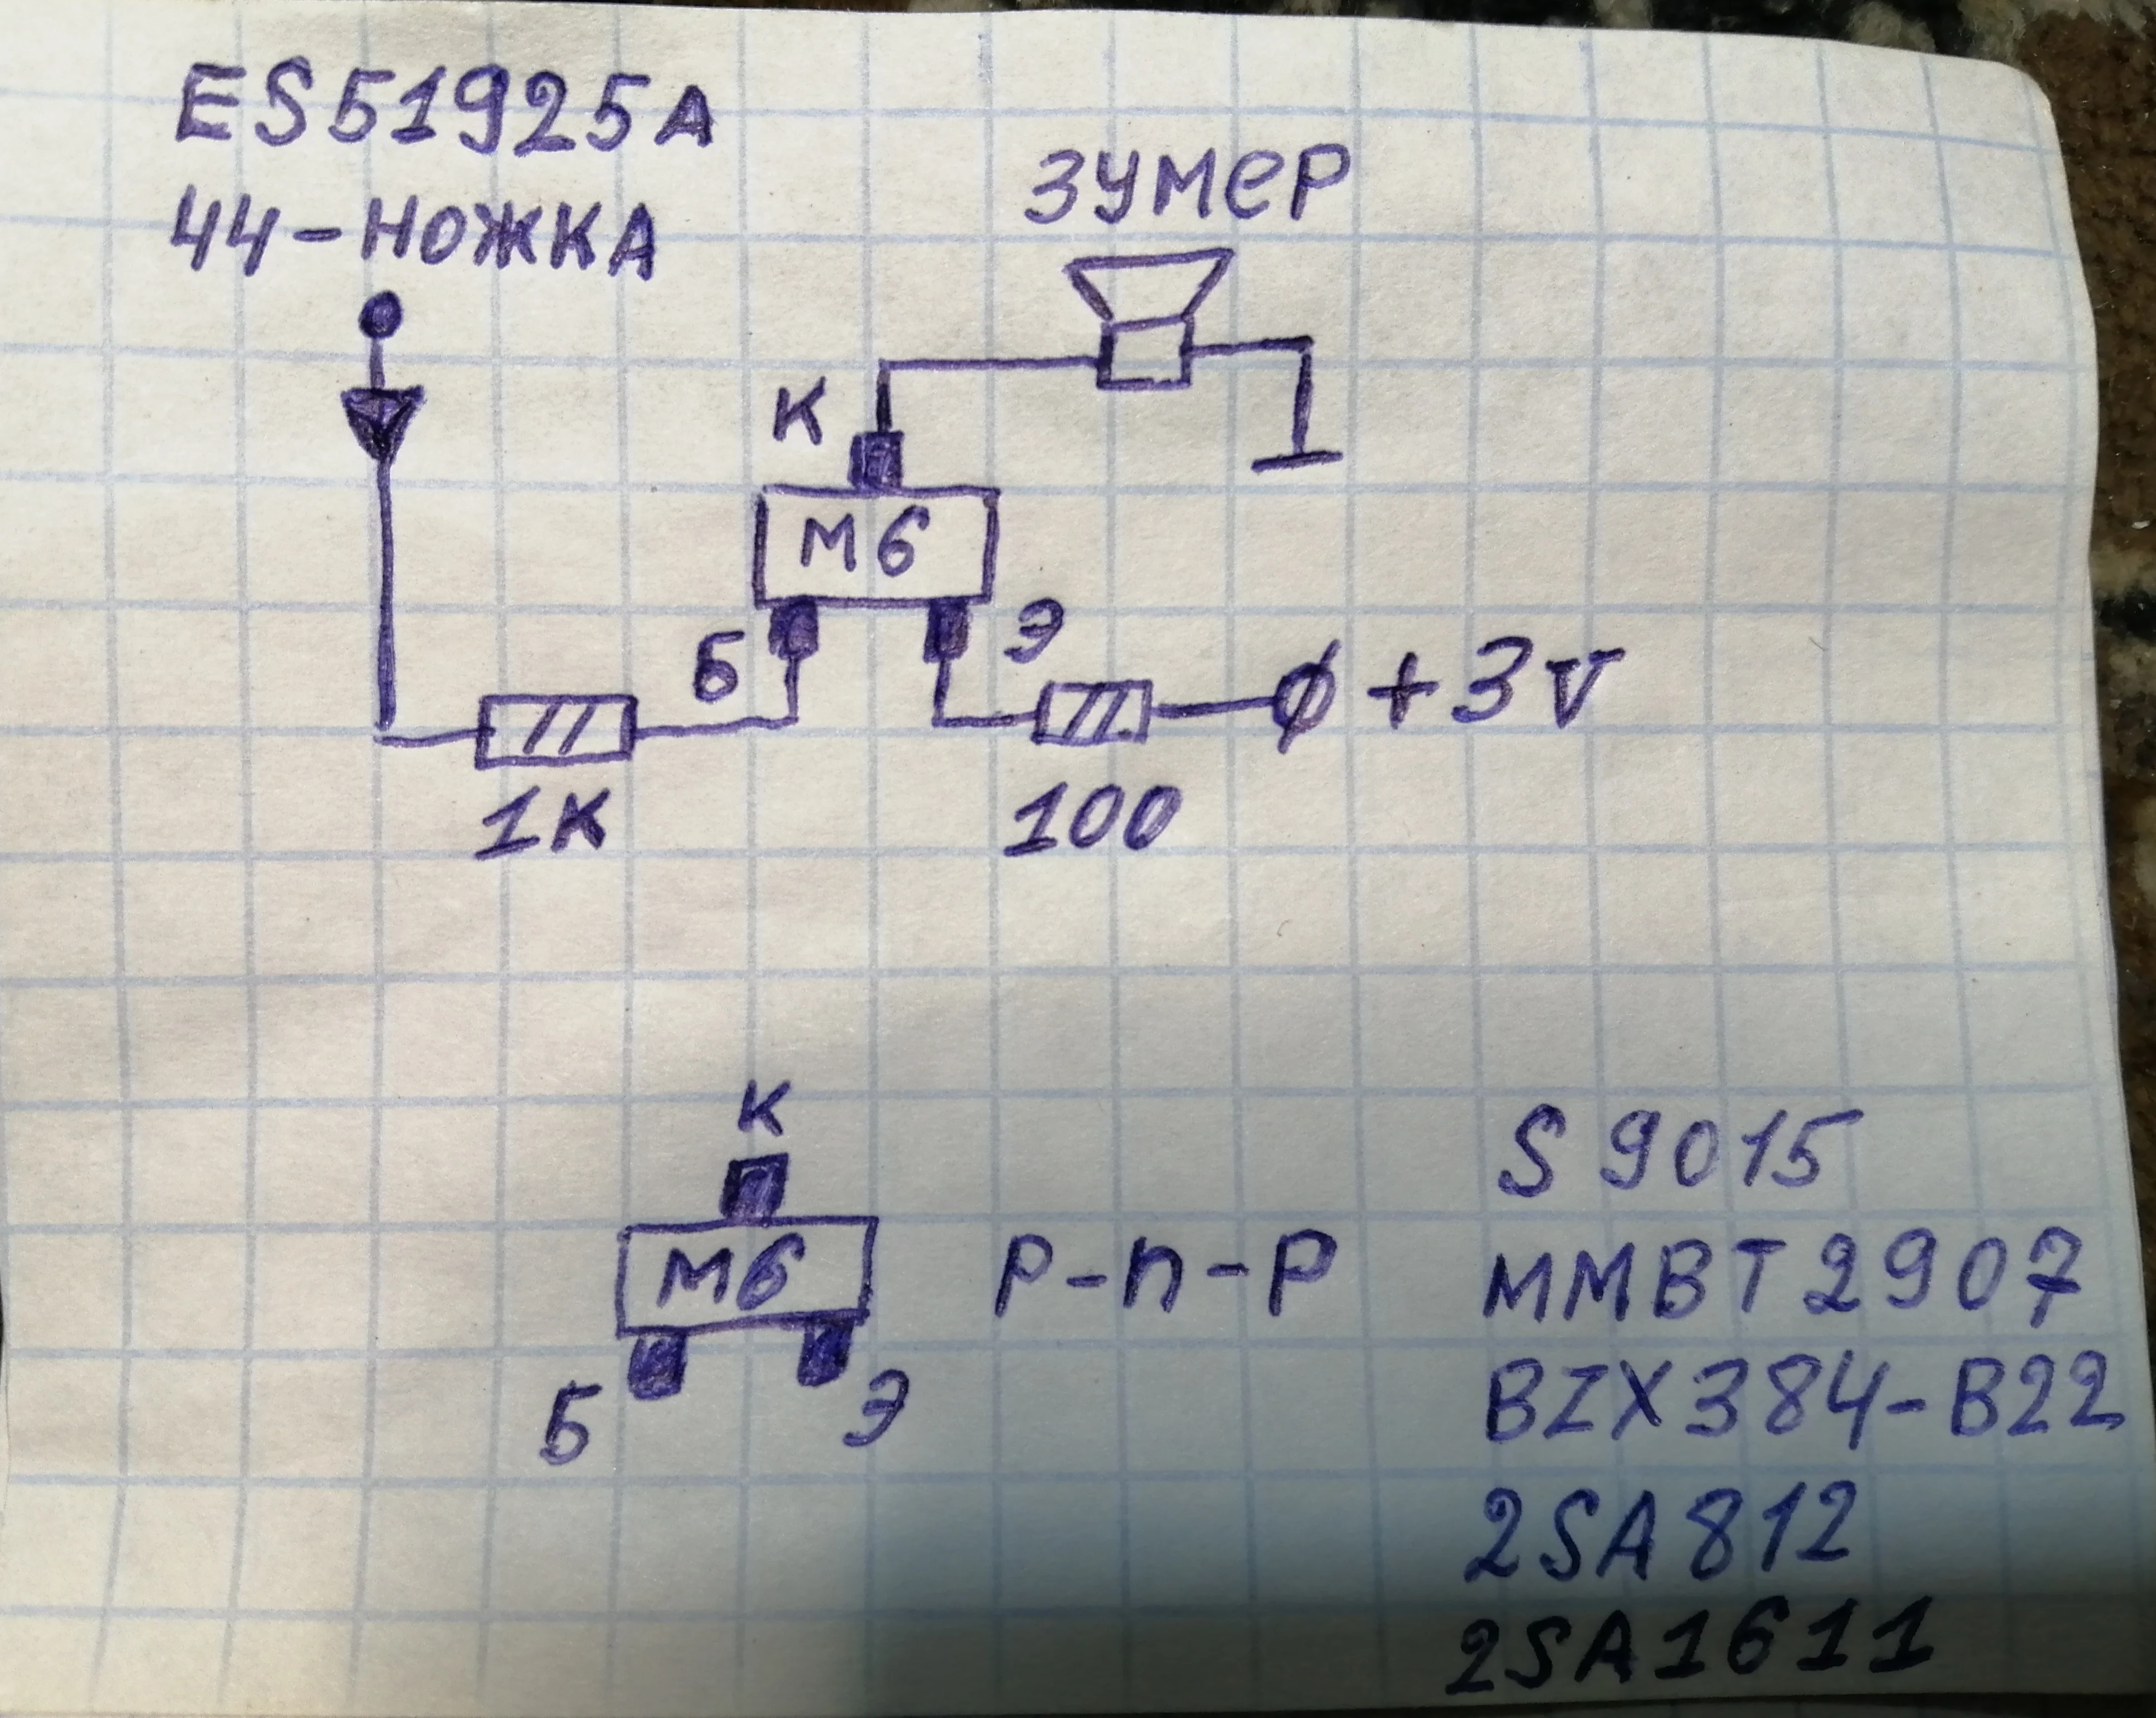 ES51925A
44-НОЖКА
ЗУМЕР
К
М6
Б
Э
+3V
1К
100
К
М6
Б
Э
P-n-P
S9015
MMBT2907
BZX384-B22
2SA812
2SA1611